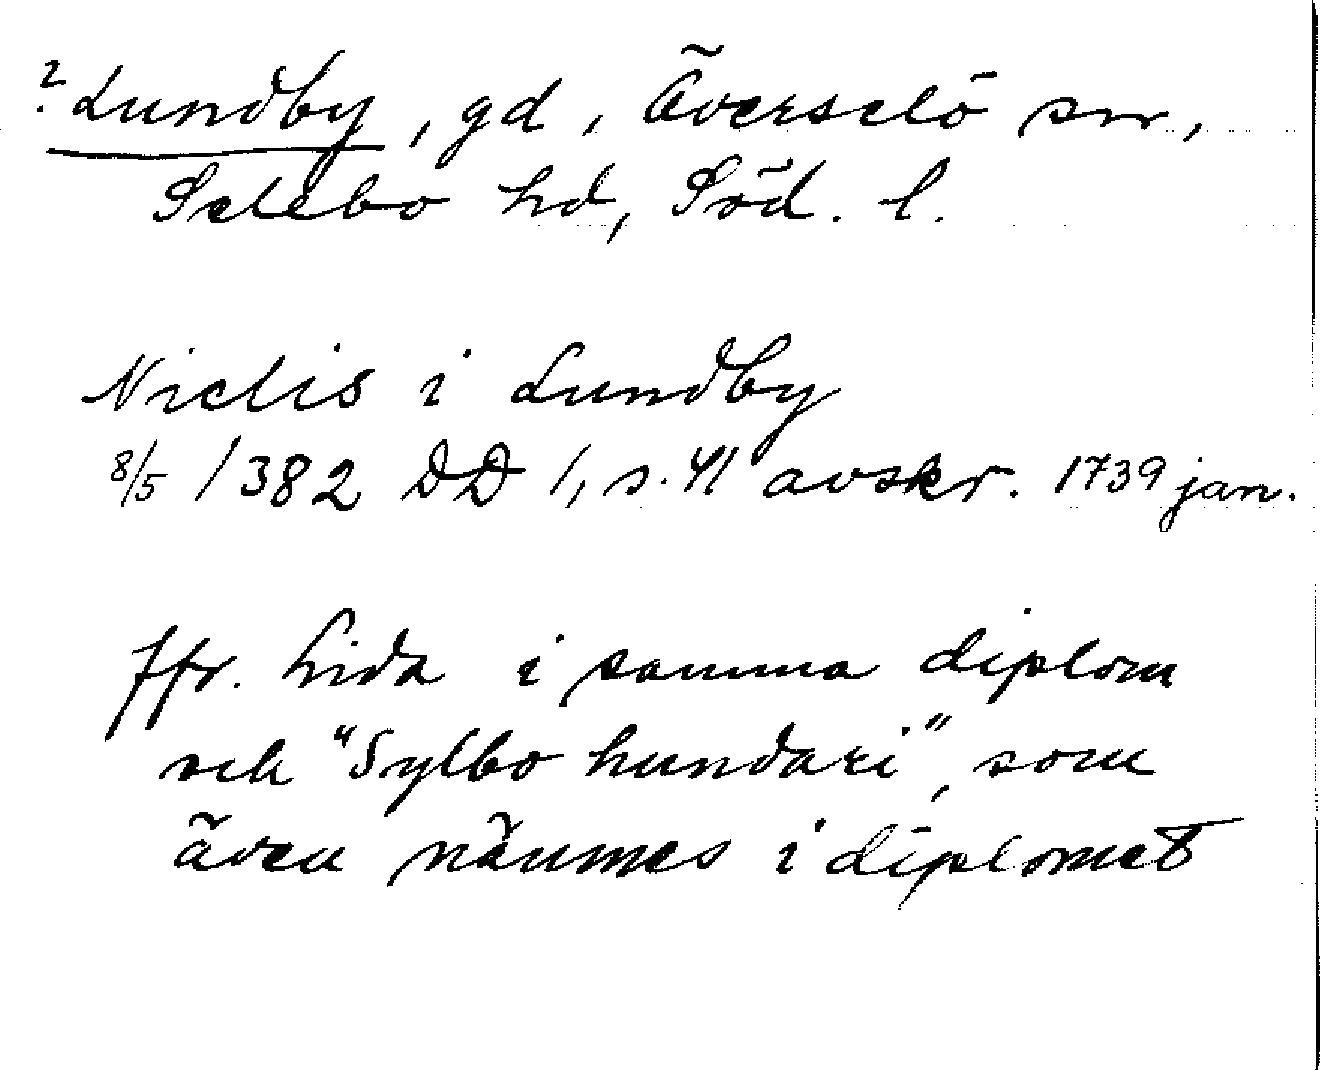 ? Lundby, gd, Överselö sn,
Selebo hd, Söd. l.
Niclis i Lundby
8/5 1382 DD 1, s. 41 avskr. 1739 jan.
Jfr. Lida i samma diplom
och "Sylbo hundari", som
även nämnes i diplomet